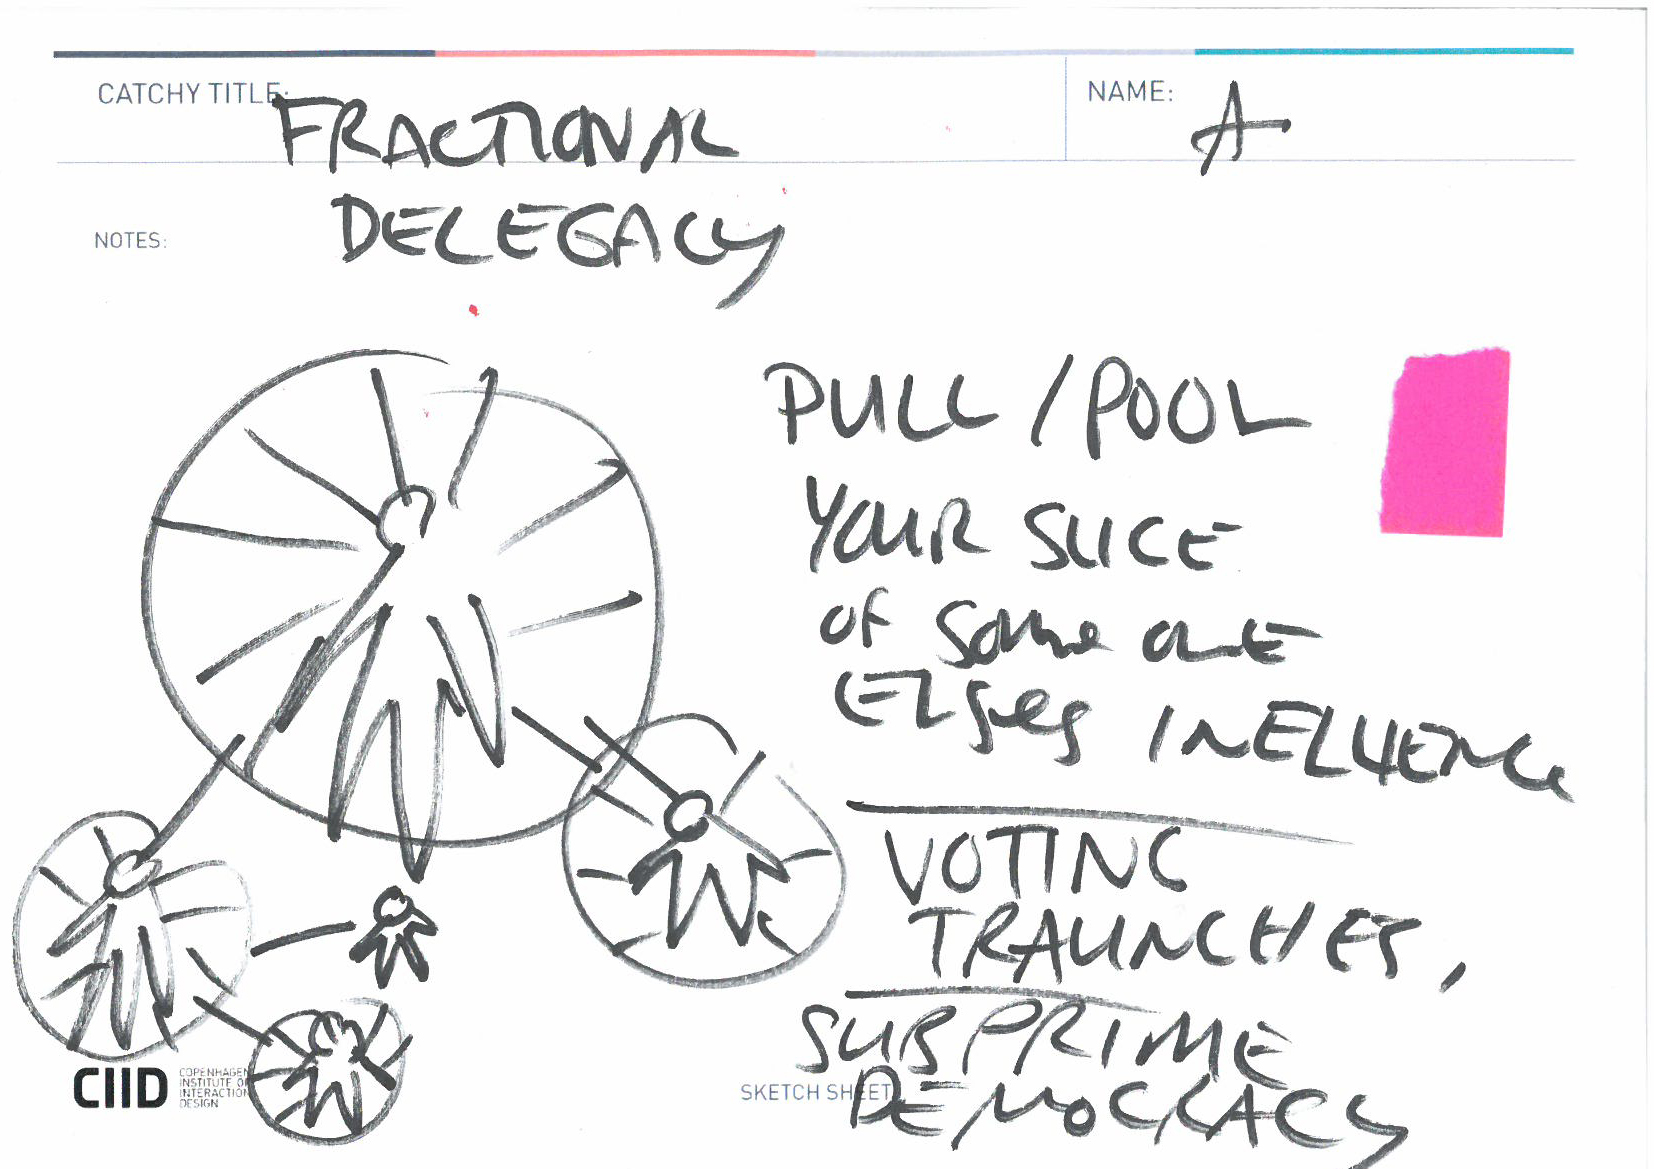 CATCHY TITLE:
FRACTIONAL
DELEGACY
NAME: A
NOTES:
PULL / POOL
YOUR SLICE
OF SOME ONE
ELSES INFLUENCE
VOTING
TRAUNCHES,
SUBPRIME
DEMOCRACY
CIID
COPENHAGEN
INSTITUTE OF
INTERACTION
DESIGN
SKETCH SHEET